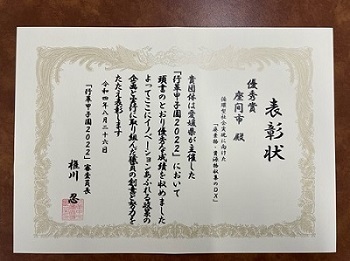 表彰状
優秀賞
座間市 殿
循環型社会実現に向けた
「廃棄物・資源物収集のDX」
貴団体は愛媛県が主催した
「行革甲子園2022」において
頭書のとおり優秀な成績を収めました
よってここにイノベーションあふれる政策の
企画と実行に取り組んだ職員の創意と努力を
たたえ表彰します
令和四年八月二十六日
「行革甲子園2022」審査委員長
榧川 忍